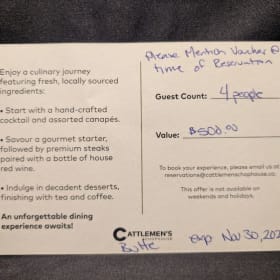 Please Mention Voucher @
time of Reservation
Enjoy a culinary journey
featuring fresh, locally sourced
ingredients:
• Start with a hand-crafted
cocktail and assorted canapés.
• Savour a gourmet starter,
followed by premium steaks
paired with a bottle of house
red wine.
• Indulge in decadent desserts,
finishing with tea and coffee.
An unforgettable dining
experience awaits!
Guest Count: 4 people
Value: $500.00
To book your experience, please email us at
reservations@cattlemenschophouse.c
This offer is not available on
weekends and holidays.
CATTLEMEN'S
Butte
exp Nov 30, 202